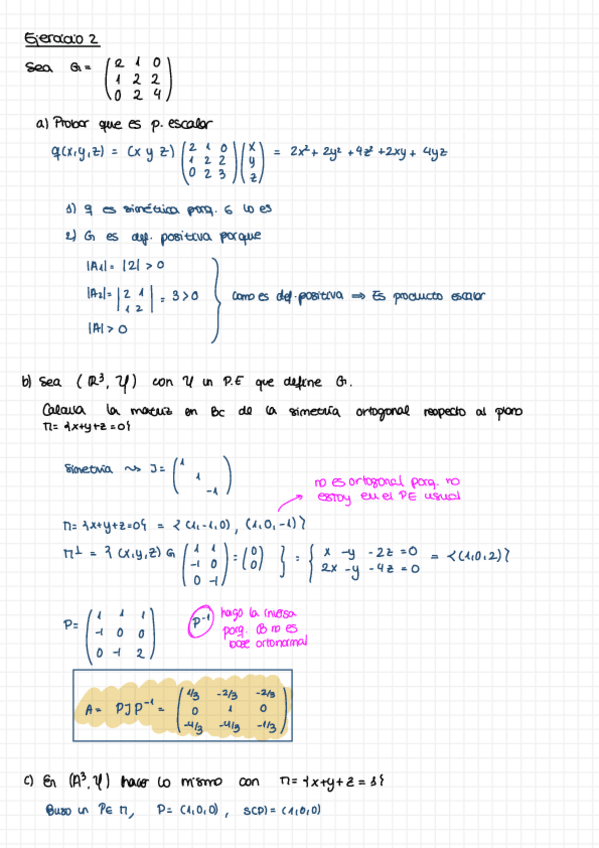 Ejercicio 2
Sea G = ( 2 1 0
1 2 2
0 2 4 )
a) Probar que es p. escalar
q(x,y,z) = (x y z) ( 2 1 0 ) ( x ) = 2x² + 2y² + 4z² + 2xy + 4yz
( 1 2 2 ) ( y )
( 0 2 3 ) ( z )
1) q es simétrica porq. G lo es
2) G es def. positiva porque
|A₁| = |2| > 0
|A₂| = | 2 1 | = 3 > 0
| 1 2 |
|A| > 0
como es def. positiva ⟹ Es producto escalar
b) Sea (ℝ³, φ) con φ un P.E que define G.
Calcula la matriz en Bc de la simetría ortogonal respecto al plano
π = {x+y+z=0}
Simetría ⇝ J = ( 1
1
-1 )
no es ortogonal porq. no
estoy en el PE usual
π = {x+y+z=0} = <(1,-1,0), (1,0,-1)>
π⊥ = { (x,y,z) G ( 1 1 ) = ( 0 ) } = { x - y - 2z = 0 = <(1,0,2)>
( -1 0 ) ( 0 ) 2x - y - 4z = 0
( 0 -1 )
P = ( 1 1 1
-1 0 0
0 -1 2 )
P⁻¹ hago la inversa
porq. B no es
base ortonormal
A = PJP⁻¹ = ( 1/3 -2/3 -2/3
0 1 0
-4/3 -4/3 -1/3 )
c) En (A³, φ) hacer lo mismo con π = {x+y+z=1}
Busco un P ∈ π, P = (1,0,0), S(P) = (1,0,0)